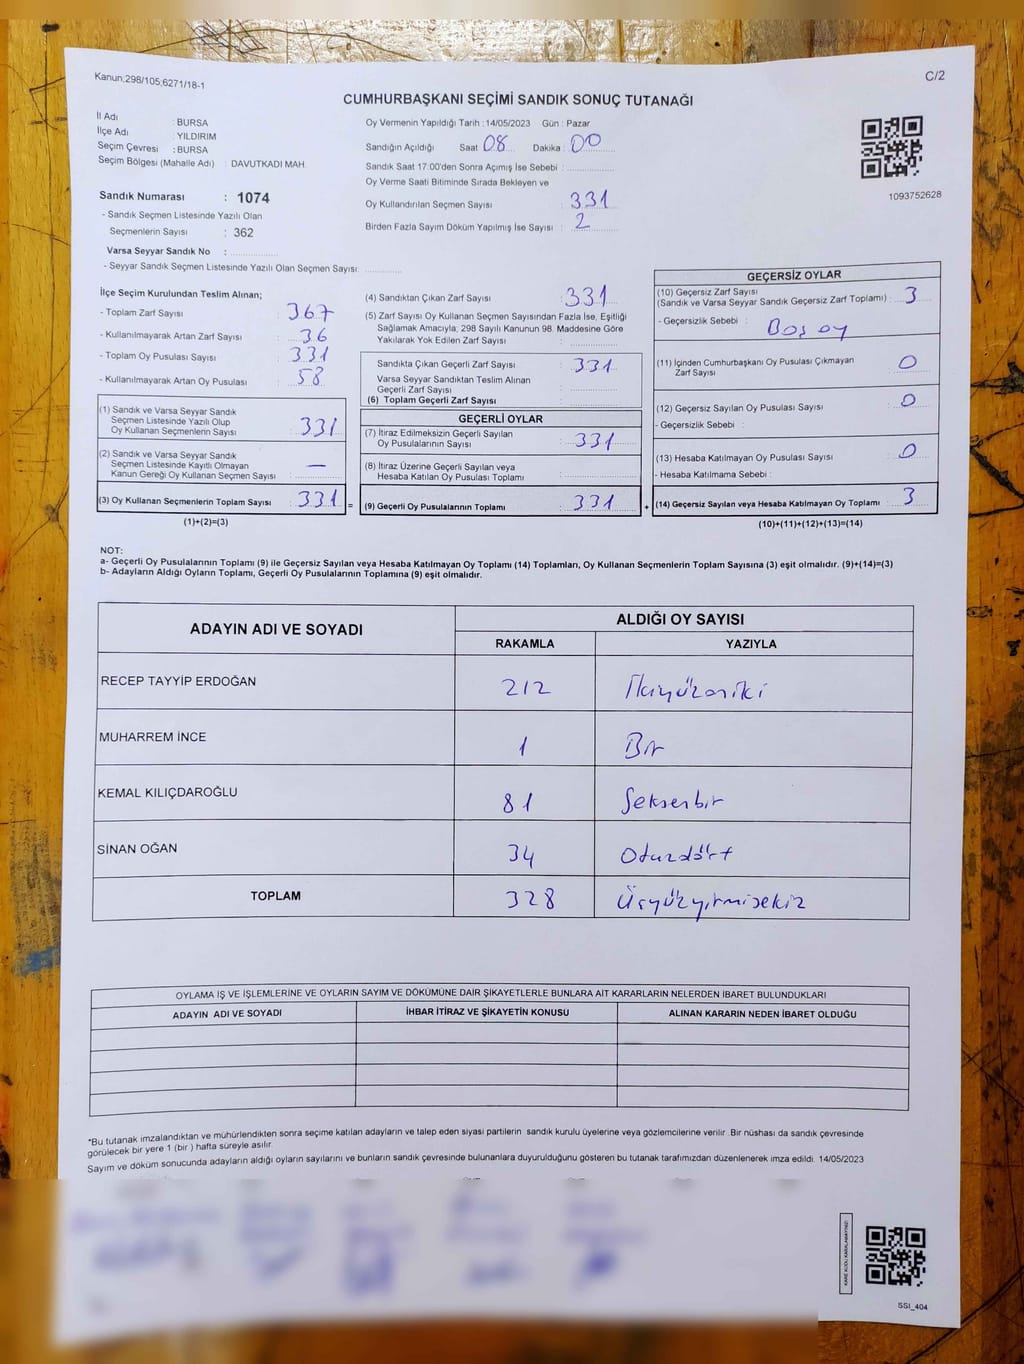 Kanun;298/105,6271/18-1
C/2
CUMHURBAŞKANI SEÇİMİ SANDIK SONUÇ TUTANAĞI
İl Adı : BURSA
İlçe Adı : YILDIRIM
Seçim Çevresi : BURSA
Seçim Bölgesi (Mahalle Adı) : DAVUTKADI MAH.
Sandık Numarası : 1074
- Sandık Seçmen Listesinde Yazılı Olan
Seçmenlerin Sayısı : 362
Varsa Seyyar Sandık No :
- Seyyar Sandık Seçmen Listesinde Yazılı Olan Seçmen Sayısı:
Oy Vermenin Yapıldığı Tarih : 14/05/2023 Gün : Pazar
Sandığın Açıldığı Saat 08 Dakika : 00
Sandık Saat 17:00'den Sonra Açımış İse Sebebi :
Oy Verme Saati Bitiminde Sırada Bekleyen ve
Oy Kullandırılan Seçmen Sayısı : 331
Birden Fazla Sayım Döküm Yapılmış İse Sayısı : 2
1093752628
İlçe Seçim Kurulundan Teslim Alınan;
- Toplam Zarf Sayısı : 367
- Kullanılmayarak Artan Zarf Sayısı : 36
- Toplam Oy Pusulası Sayısı : 331
- Kullanılmayarak Artan Oy Pusulası : 58
(1) Sandık ve Varsa Seyyar Sandık
Seçmen Listesinde Yazılı Olup
Oy Kullanan Seçmenlerin Sayısı : 331
(2) Sandık ve Varsa Seyyar Sandık
Seçmen Listesinde Kayıtlı Olmayan
Kanun Gereği Oy Kullanan Seçmen Sayısı : —
(3) Oy Kullanan Seçmenlerin Toplam Sayısı : 331 =
(1)+(2)=(3)
(4) Sandıktan Çıkan Zarf Sayısı : 331
(5) Zarf Sayısı Oy Kullanan Seçmen Sayısından Fazla İse, Eşitliği
Sağlamak Amacıyla; 298 Sayılı Kanunun 98. Maddesine Göre
Yakılarak Yok Edilen Zarf Sayısı :
Sandıkta Çıkan Geçerli Zarf Sayısı : 331
Varsa Seyyar Sandıktan Teslim Alınan
Geçerli Zarf Sayısı :
(6) Toplam Geçerli Zarf Sayısı :
GEÇERLİ OYLAR
(7) İtiraz Edilmeksizin Geçerli Sayılan
Oy Pusulalarının Sayısı : 331
(8) İtiraz Üzerine Geçerli Sayılan veya
Hesaba Katılan Oy Pusulası Toplamı :
(9) Geçerli Oy Pusulalarının Toplamı : 331 +
GEÇERSİZ OYLAR
(10) Geçersiz Zarf Sayısı
(Sandık ve Varsa Seyyar Sandık Geçersiz Zarf Toplamı) : 3
- Geçersizlik Sebebi : Boş oy
(11) İçinden Cumhurbaşkanı Oy Pusulası Çıkmayan
Zarf Sayısı : 0
(12) Geçersiz Sayılan Oy Pusulası Sayısı : 0
- Geçersizlik Sebebi :
(13) Hesaba Katılmayan Oy Pusulası Sayısı : 0
- Hesaba Katılmama Sebebi :
(14) Geçersiz Sayılan veya Hesaba Katılmayan Oy Toplamı : 3
(10)+(11)+(12)+(13)=(14)
NOT:
a- Geçerli Oy Pusulalarının Toplamı (9) ile Geçersiz Sayılan veya Hesaba Katılmayan Oy Toplamı (14) Toplamları, Oy Kullanan Seçmenlerin Toplam Sayısına (3) eşit olmalıdır. (9)+(14)=(3)
b- Adayların Aldığı Oyların Toplamı, Geçerli Oy Pusulalarının Toplamına (9) eşit olmalıdır.
ADAYIN ADI VE SOYADI
ALDIĞI OY SAYISI
RAKAMLA YAZIYLA
RECEP TAYYİP ERDOĞAN 212 İkiyüzoniki
MUHARREM İNCE 1 Bir
KEMAL KILIÇDAROĞLU 81 Seksenbir
SİNAN OĞAN 34 Otuzdört
TOPLAM 328 Üçyüzyirmisekiz
OYLAMA İŞ VE İŞLEMLERİNE VE OYLARIN SAYIM VE DÖKÜMÜNE DAİR ŞİKAYETLERLE BUNLARA AİT KARARLARIN NELERDEN İBARET BULUNDUKLARI
ADAYIN ADI VE SOYADI İHBAR İTİRAZ VE ŞİKAYETİN KONUSU ALINAN KARARIN NEDEN İBARET OLDUĞU
*Bu tutanak imzalandıktan ve mühürlendikten sonra seçime katılan adayların ve talep eden siyasi partilerin sandık kurulu üyelerine veya gözlemcilerine verilir. Bir nüshası da sandık çevresinde
görülecek bir yere 1 (bir ) hafta süreyle asılır.
Sayım ve döküm sonucunda adayların aldığı oyların sayılarını ve bunların sandık çevresinde bulunanlara duyurulduğunu gösteren bu tutanak tarafımızdan düzenlenerek imza edildi. 14/05/2023
KARE KODU KARALAMAYINIZ!
SSI_404